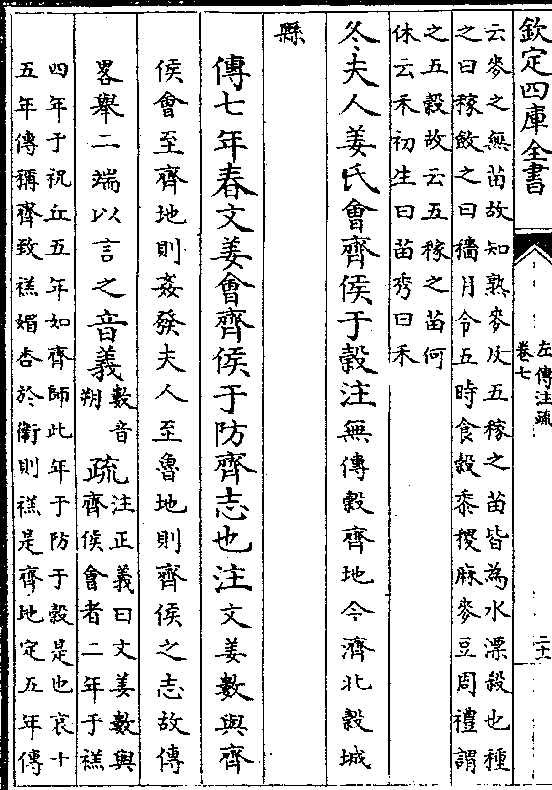 欽定四庫全書
左傳注疏
卷七
二十
云麥之無苗故知熟麥及五稼之苗皆為水漂殺也種
之曰稼斂之曰穡月令五時食穀黍稷麻麥豆周禮謂
之五穀故云五稼之苗何
休云禾初生曰苗秀曰禾
冬夫人姜氏會齊侯于穀注無傳穀齊地今濟北穀城
縣
傳七年春文姜會齊侯于防齊志也注文姜數與齊
侯會至齊地則姦發夫人至魯地則齊侯之志故傳
畧舉二端以言之音義數音
朔
疏注正義曰文姜數與
齊侯會者二年于禚
四年于祝丘五年如齊師此年于防于穀是也哀十
五年傳稱齊致禚媚杏於衛則禚是齊地定五年傳